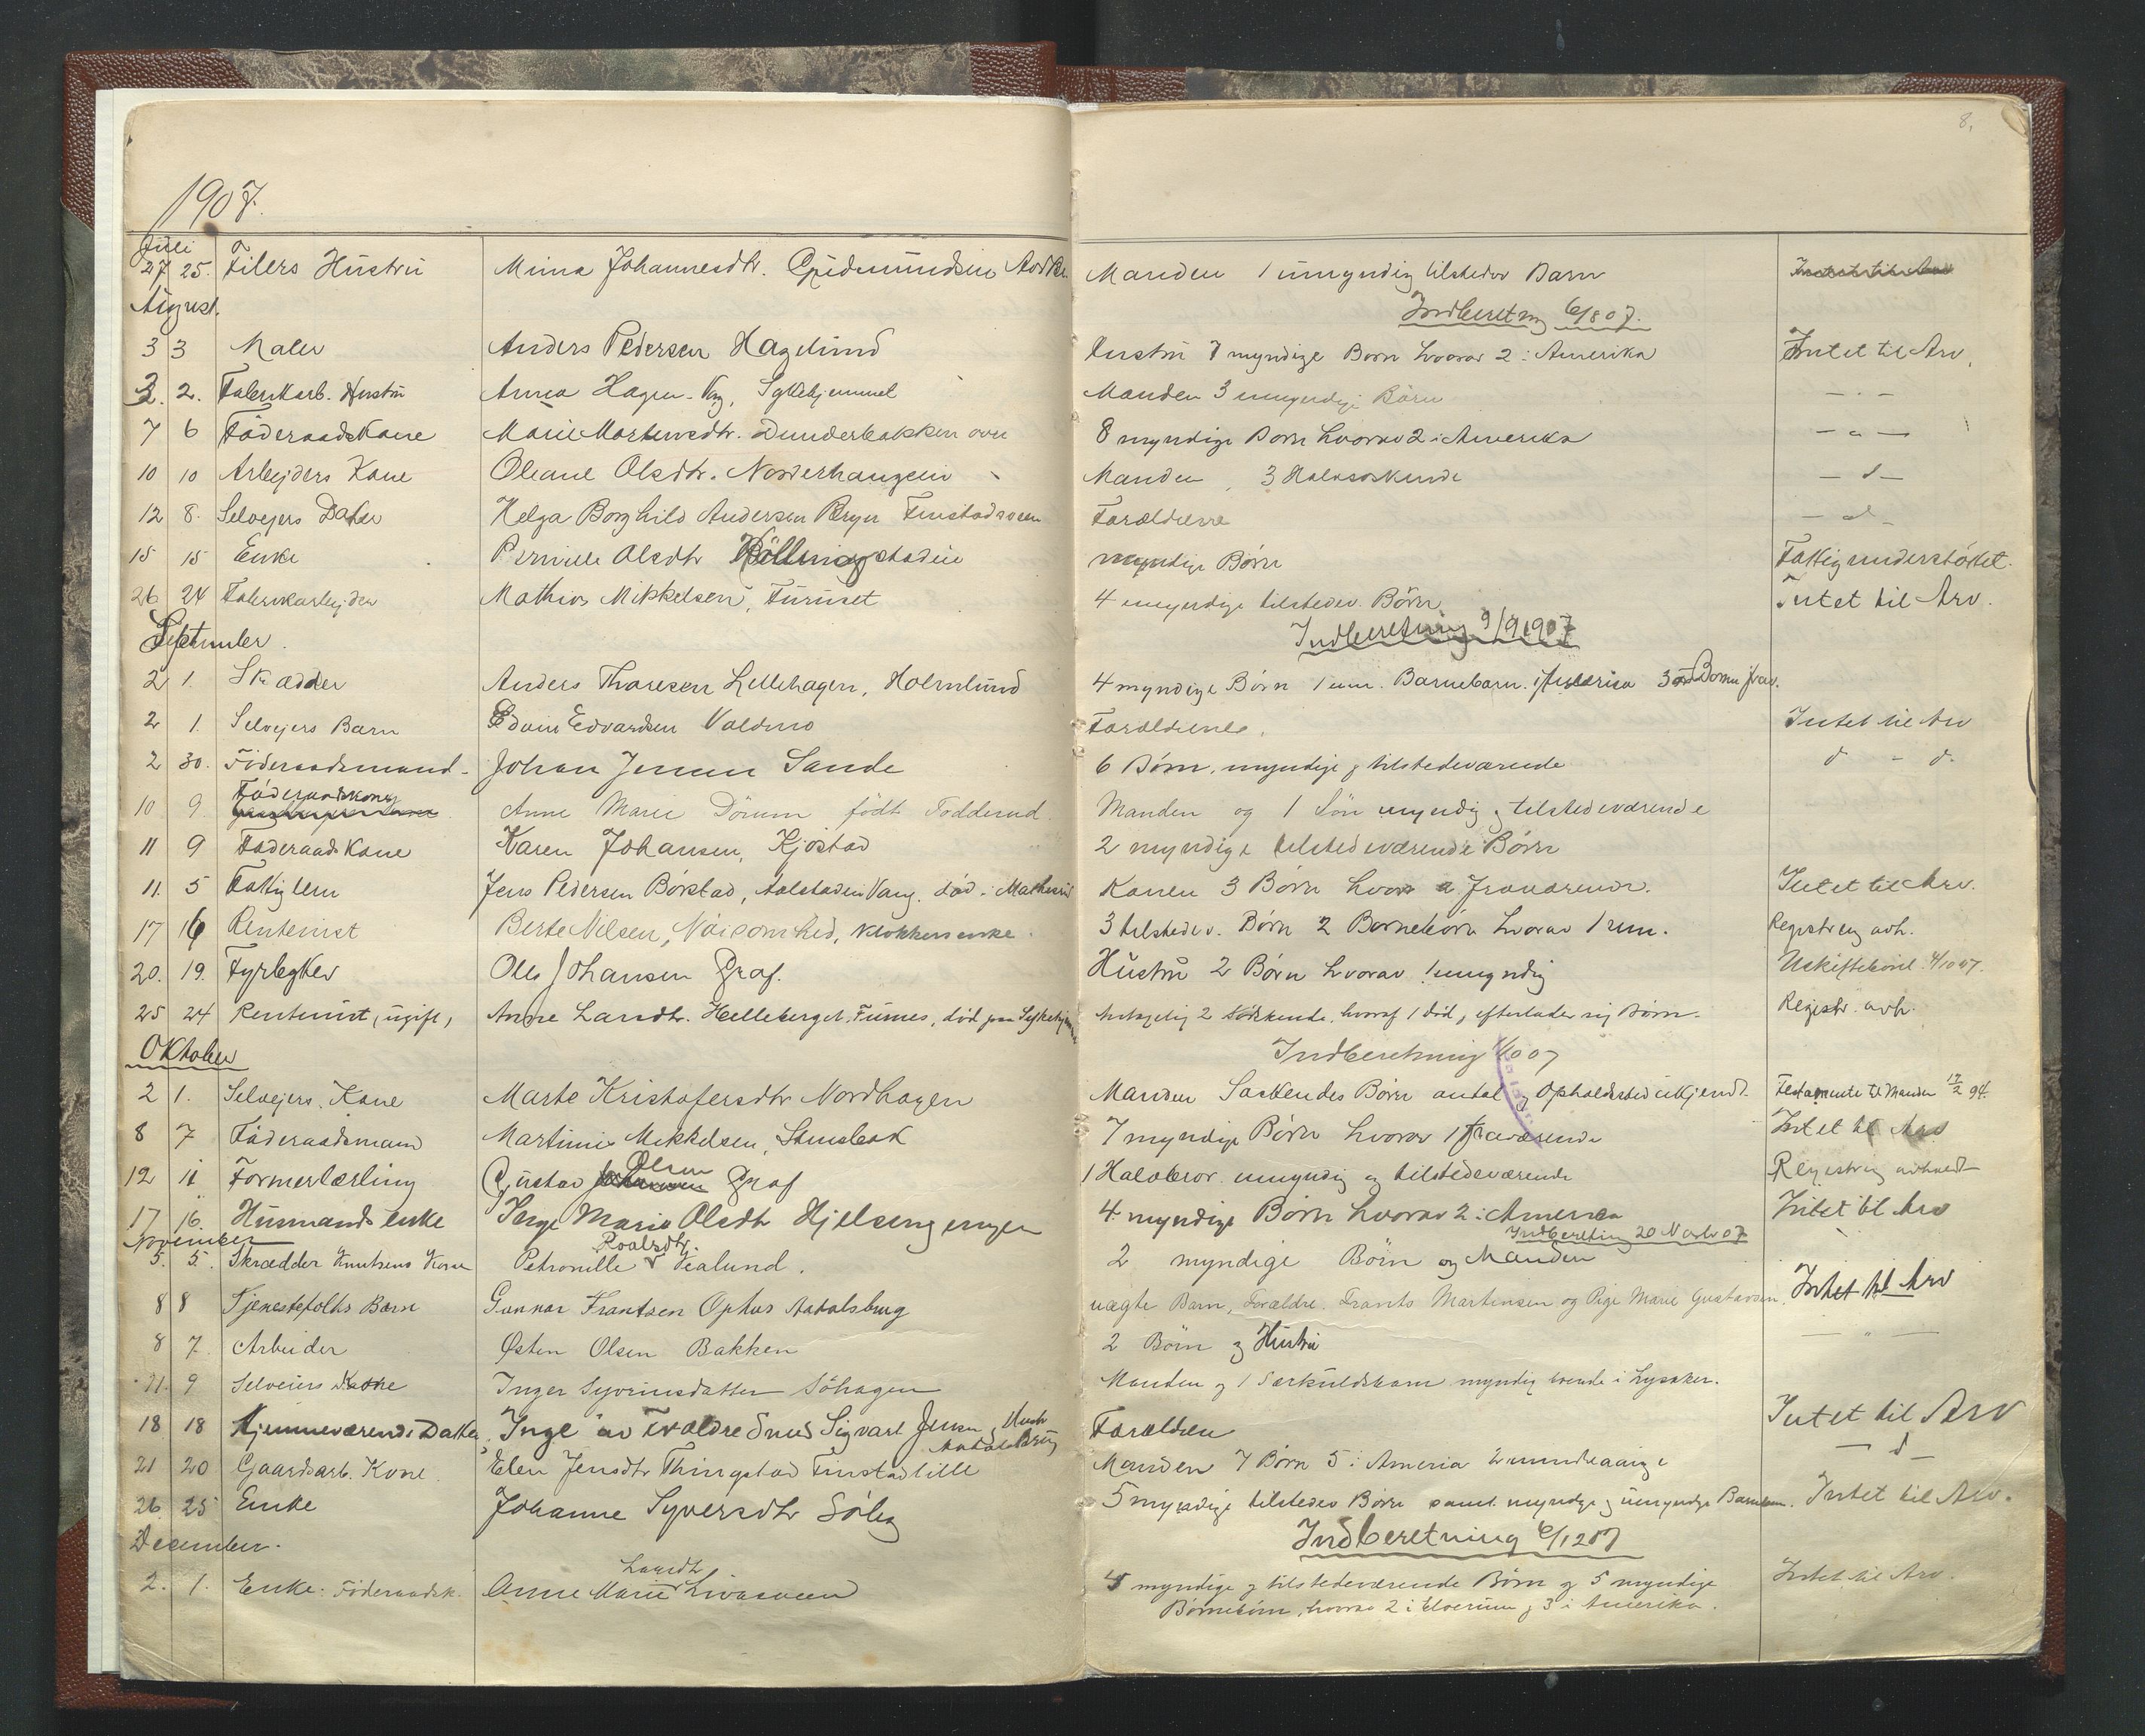 8.
1907.
Juli
27 25. Filers Hustru Mina Johannesdtr. Gudmundsen Manden 1 umyndig tilstedev Barn
August.
Indberetng 6/8 07.
3 3 Maler Anders Pedersen Hagelund Hustru 7 myndige Børn hvorav 2 i Amerika Intet til Arv.
2. 2. Fabrikarb. Hustru Anna Hagen Vang, Sykehjemmet Manden 3 umyndige Børn - " -
7 6 Föderaadskone Marie Martinsdtr. Dunderbakken 8 myndige Børn hvorav 2 i Amerika - " -
10 10 Arbejders Kone Oleane Olsdtr. Norderhaugen Manden, 3 Halvsøskende - d -
12 8. Selvejers Datter Helga Borghild Andersen Bryn Finstad Forældrene - d -
15 15 Enke Pernille Olsdtr myndige Børn Fattigunderstöttet.
26 24 Fabrikarbejder Mathias Mikkelsen, Furuset 4 umyndige tilstedev. Børn Intet til Arv.
September.
Indberetning 9/9 1907
2 1. Skrædder Anders Thoresen Lillehagen, Holmlund 4 myndige Børn 1 um. Barnebarn i Amerika 3
2 1. Selvejers Barn Edvardsen Valdmo Forældrene. Intet til Arv
2 30. Föderaadsmand Johan Jensen Sande 6 Børn, myndige og tilstedeværende d - d.
Föderaadskone
10 9. Anne Marie Dörum født Todderud. Manden og 1 Sön myndig og tilstedeværende
11 9 Föderaadskone Karen Johansen, Kjöstad 2 myndige tilstedeværende Børn
11. 5 Fattiglem Jens Pedersen Börstad, Aalstaden Vang. død i Konen 3 Børn hvorav 2 fraværende. Intet til Arv.
17 16 Rentenist Berte Nilsen, Nöisomhed, Klokkerenke. 3 tilstedev. Børn 2 Børnebörn hvorav 1 um. Registrering avh.
20. 19. Fyrbøter Ole Johansen Graf. Hustru 2 Børn hvorav 1 umyndig Uskiftebevil. 4/10 07.
25 24 Rentenist, ugift, Anne Larsdtr. Helleberget, Furnes, død paa Sykehjemmet 2 Södskende, hvoraf 1 død, efterlader sig Børn. Registr. avh.
Oktober
Indberetning 1/10 07
2 1. Selvejers Kone Marte Kristofersdtr Nordhagen Manden Söskendes Børn antal og Opholdssted ukjendt. Testamente til Manden 17/2 94.
8 7 Föderaadsmand Martinus Mikkelsen, Stensbak 7 myndige Børn hvorav 1 fraværende Intet til Arv
Olsen
12 11 Formerlærling Gustav Graf 1 Halvbror umyndig og tilstedeværende Registrering avholdt
17 16. Husmandsenke Inge Marie Olsdtr Hjelsengengen 4 myndige Børn hvorav 2 i Amerika Intet til Arv
November
Indberetning 20 Novbr 07
Roalsdtr.
5. 5. Skrædder Knutsens Kone Petronille Fialund. 2 myndige Börn og Manden
8 8 Tjenestefolks Barn Gunnar Frantsen Ophus Aadalsbrug uægte Barn, Forældre. Frants Martinsen og Pige Marie Gustavsen. Intet til Arv
8 7. Arbeider Østen Olsen Bakken 2 Börn og Hustru - " -
11. 9 Selveiers Kone Inger Syverinsdatter Söhagen Manden og 1 Særkuldsbarn myndig boende i Lysaker.
18 18 Hjemmeværende Datter, Inge av Forældre Smed Sigvart Jensen og Hustr Forældren Intet til Arv
Aadalsbrug
21 20 Gaardsarb. Kone Elen Jensdtr Thingstad Finstadlille Manden 7 Börn 5 i Ameria - d -
26. 25 Enke Johanne Syversdtr Sölig 5 myndige tilstedev Børn samt myndige og umyndige Intet til Arv.
December.
Indberetning 6/12 07
Larsdtr
2. 1. Enke. Föderaadsk. Anne Marie 4 myndige og tilstedeværende Børn og 5 myndige Intet til Arv.
Børnebörn, hvorav 2 i Elverum og 3 i Amerika.